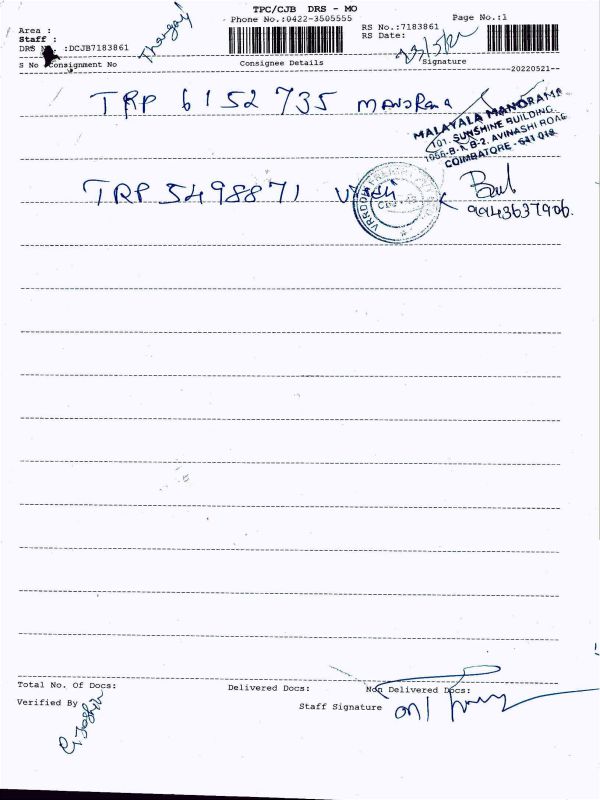 TPC/CJB DRS - MO
Phone No.:0422-3505555
Page No.:1
RS No.:7183861
RS Date:
23/5/22
Area :
Staff :
DRS No. :DCJB7183861
S No Consignment No
Consignee Details
Signature
--20220521--
TRP 6152 735 MANORAMA
MALAYALA MANORAMA
101, SUNSHINE BUILDING,
1056-B-1, B-2, AVINASHI ROAD
COIMBATORE - 641 018
TRP 5498871
9943637906.
Total No. Of Docs:
Delivered Docs:
Non Delivered Docs:
Verified By
Staff Signature